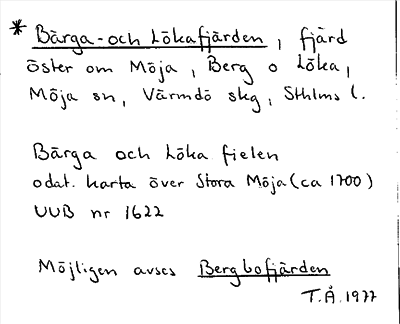 * Bärga- och Lökafjärden, fjärd
öster om Möja, Berg o Löka,
Möja sn, Värmdö skg, Sthlms l.
Bärga och Löka fielen
odat. karta över Stora Möja (ca 1700)
UUB nr 1622
Möjligen avses Bergbofjärden
T.Å. 1977